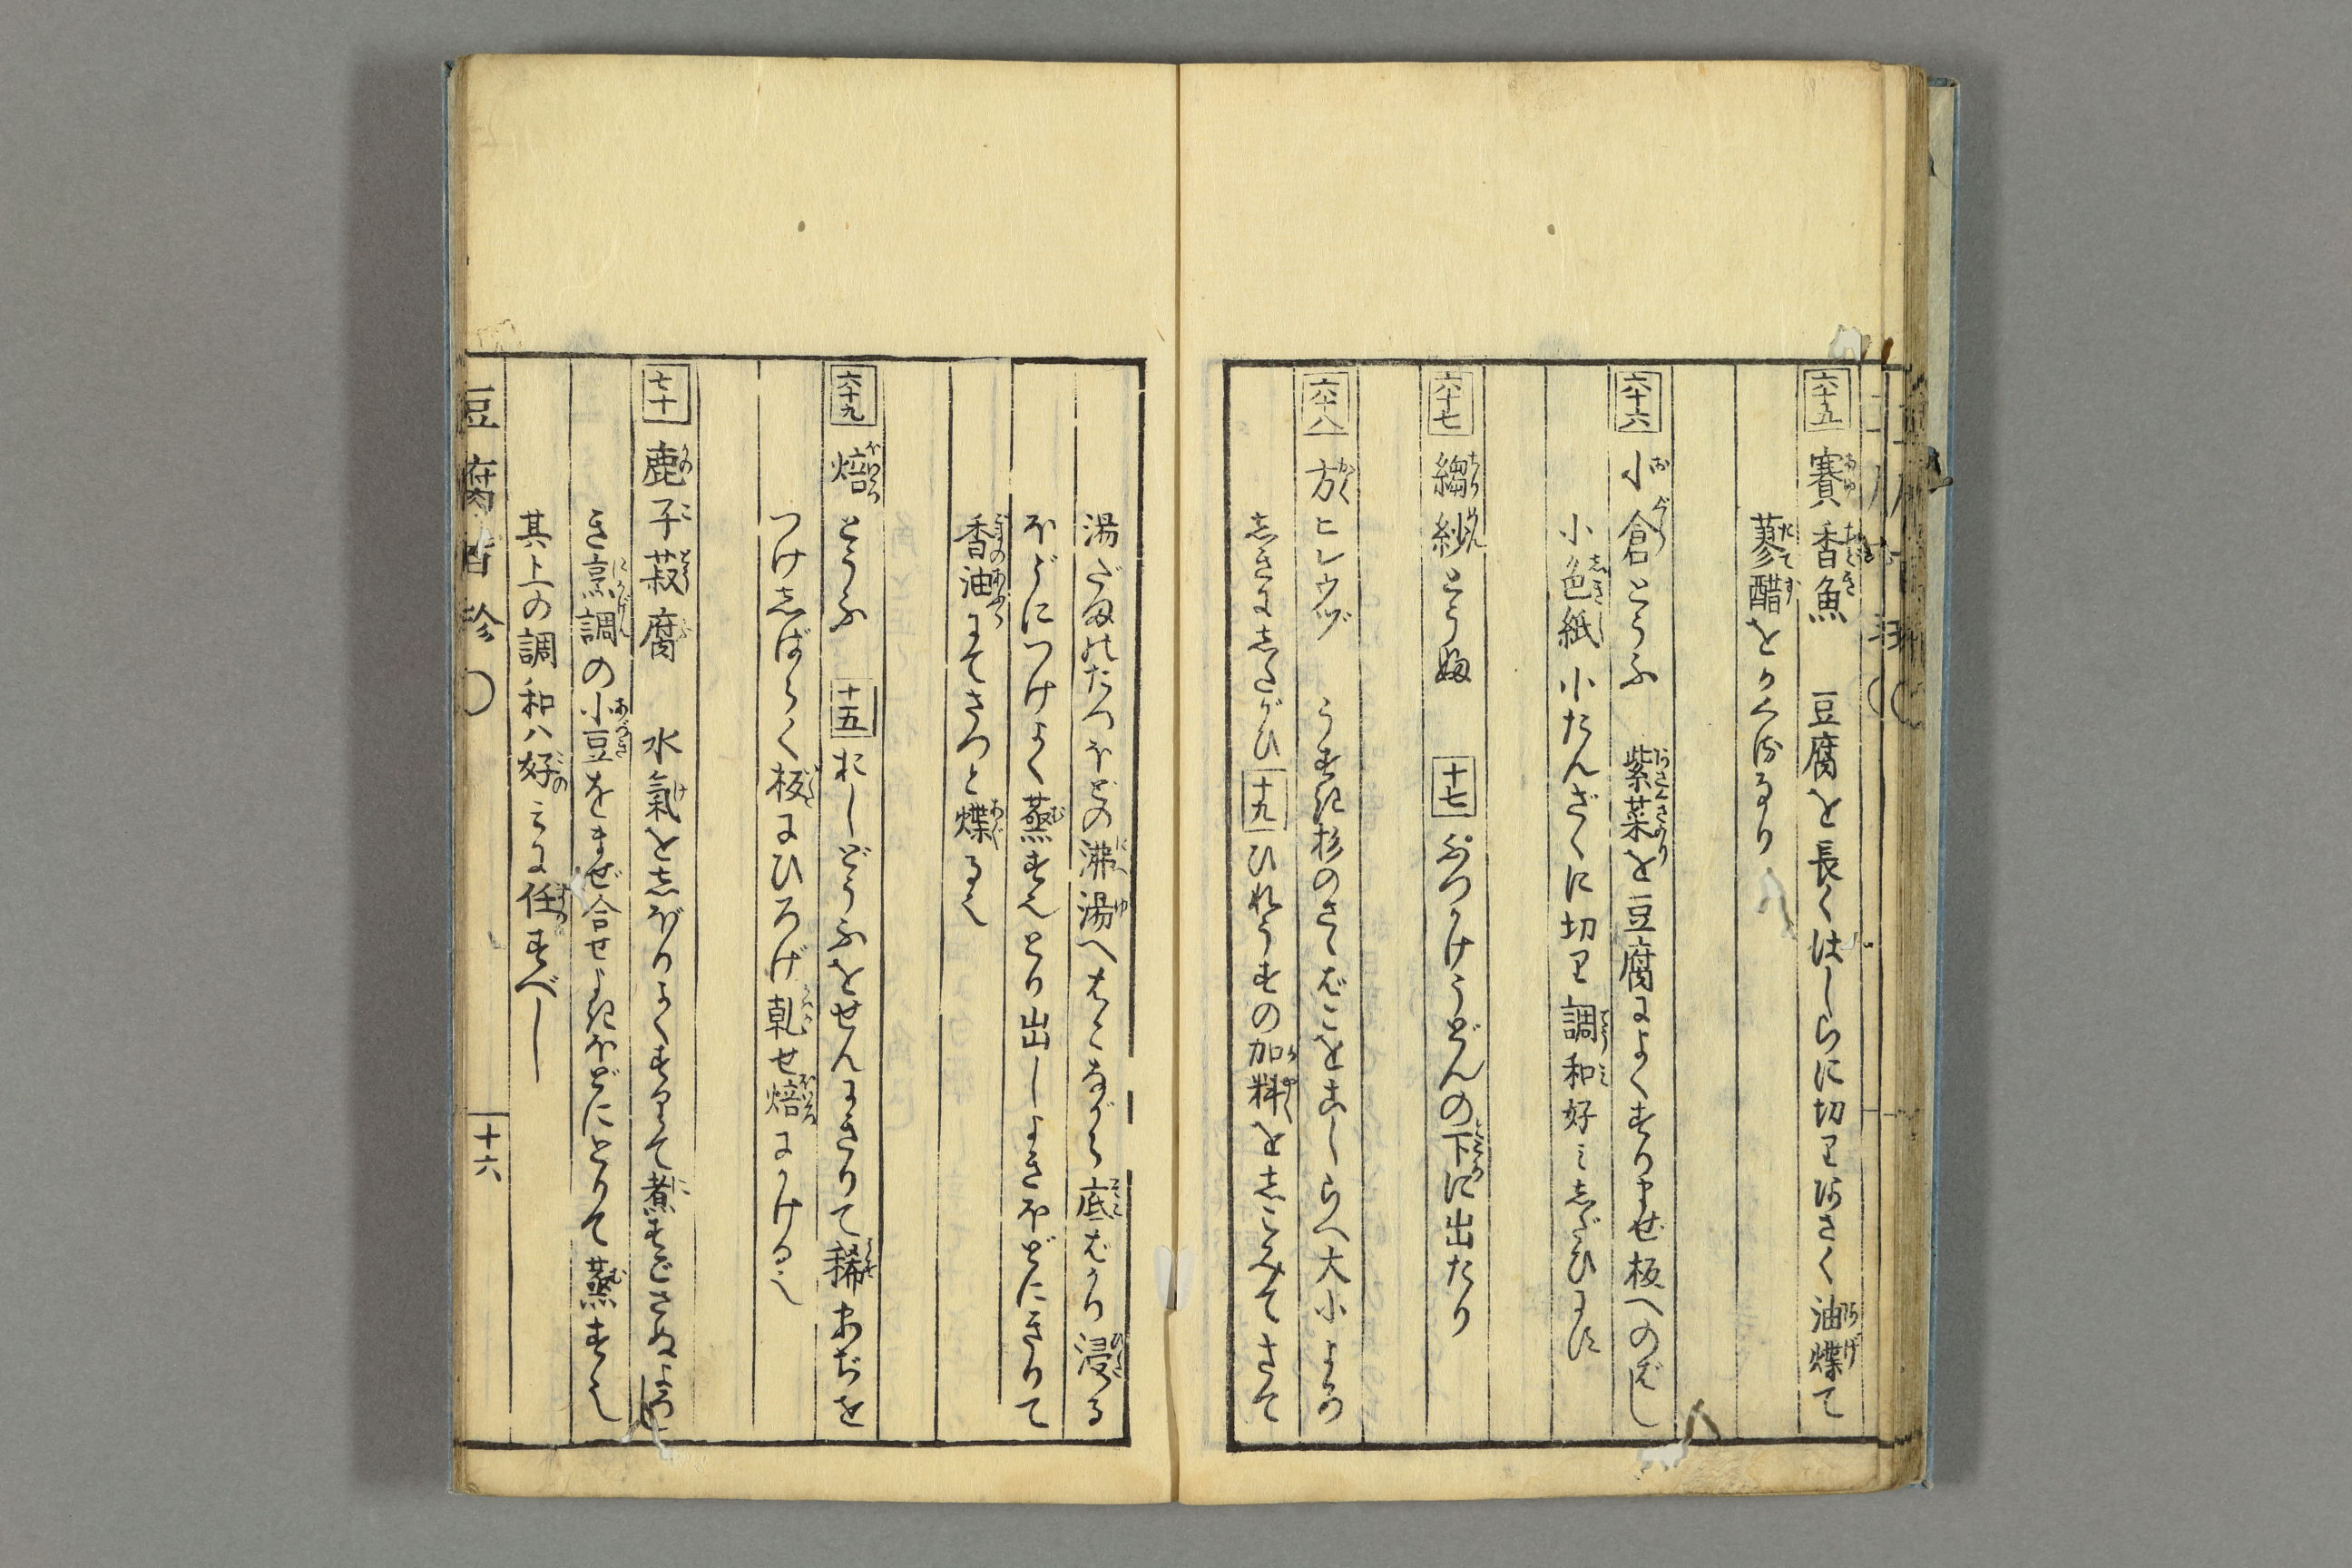 六十五 賽香魚 豆腐を長くはしらに切りあさく油煠て
蓼醋をかくるなり
六十六 小倉とうふ 紫菜を豆腐によくすりまぜ板へのばし
小色紙小たんざくに切り調和好ミしだひによ
六十七 縐紗とうふ 十七 ぶつかけうどんの下に出たり
六十八 方ヒレウヅ うすき杉のさゝばこをこしらへ大小よろつ
しきにしたがひ 十九 ひれうすの加料をしこみてさて
湯だまのたつほどの沸湯へはこながら底ばかり浸る
ほどにつけよく蒸すへしとり出しよきほどにきりて
香油にてさつと煠るへし
六十九 焙とうふ 十五 おしどうふをせんにきりて稀未ぢを
つけしばらく板にひろげ乾せ焙にかける也
七十 鹿子菽腐 水氣をしぼりよくすりて煮すごさぬように
き烹調の小豆をまぜ合せよきほどにとりて蒸す也
其上の調和ハ好ミに任すべし
豆腐百珍 〇 十六